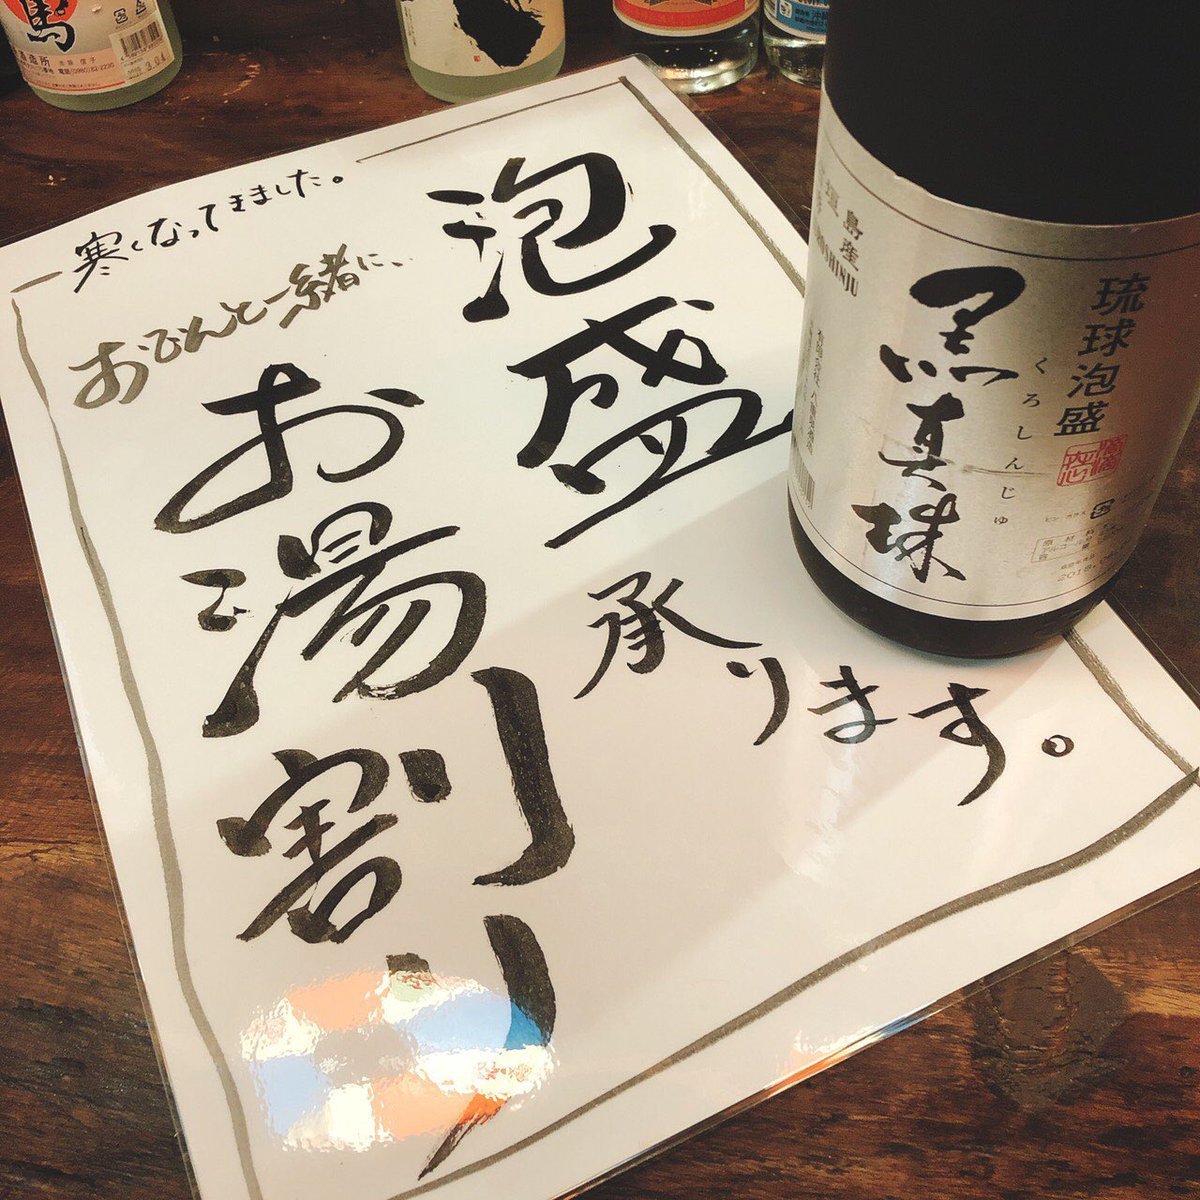 寒くなってきました。
おでんと一緒に、
泡盛
お湯割り
承ります。
琉球泡盛
黒真珠
くろしんじゅ
島産
SHINJU
馬
造所